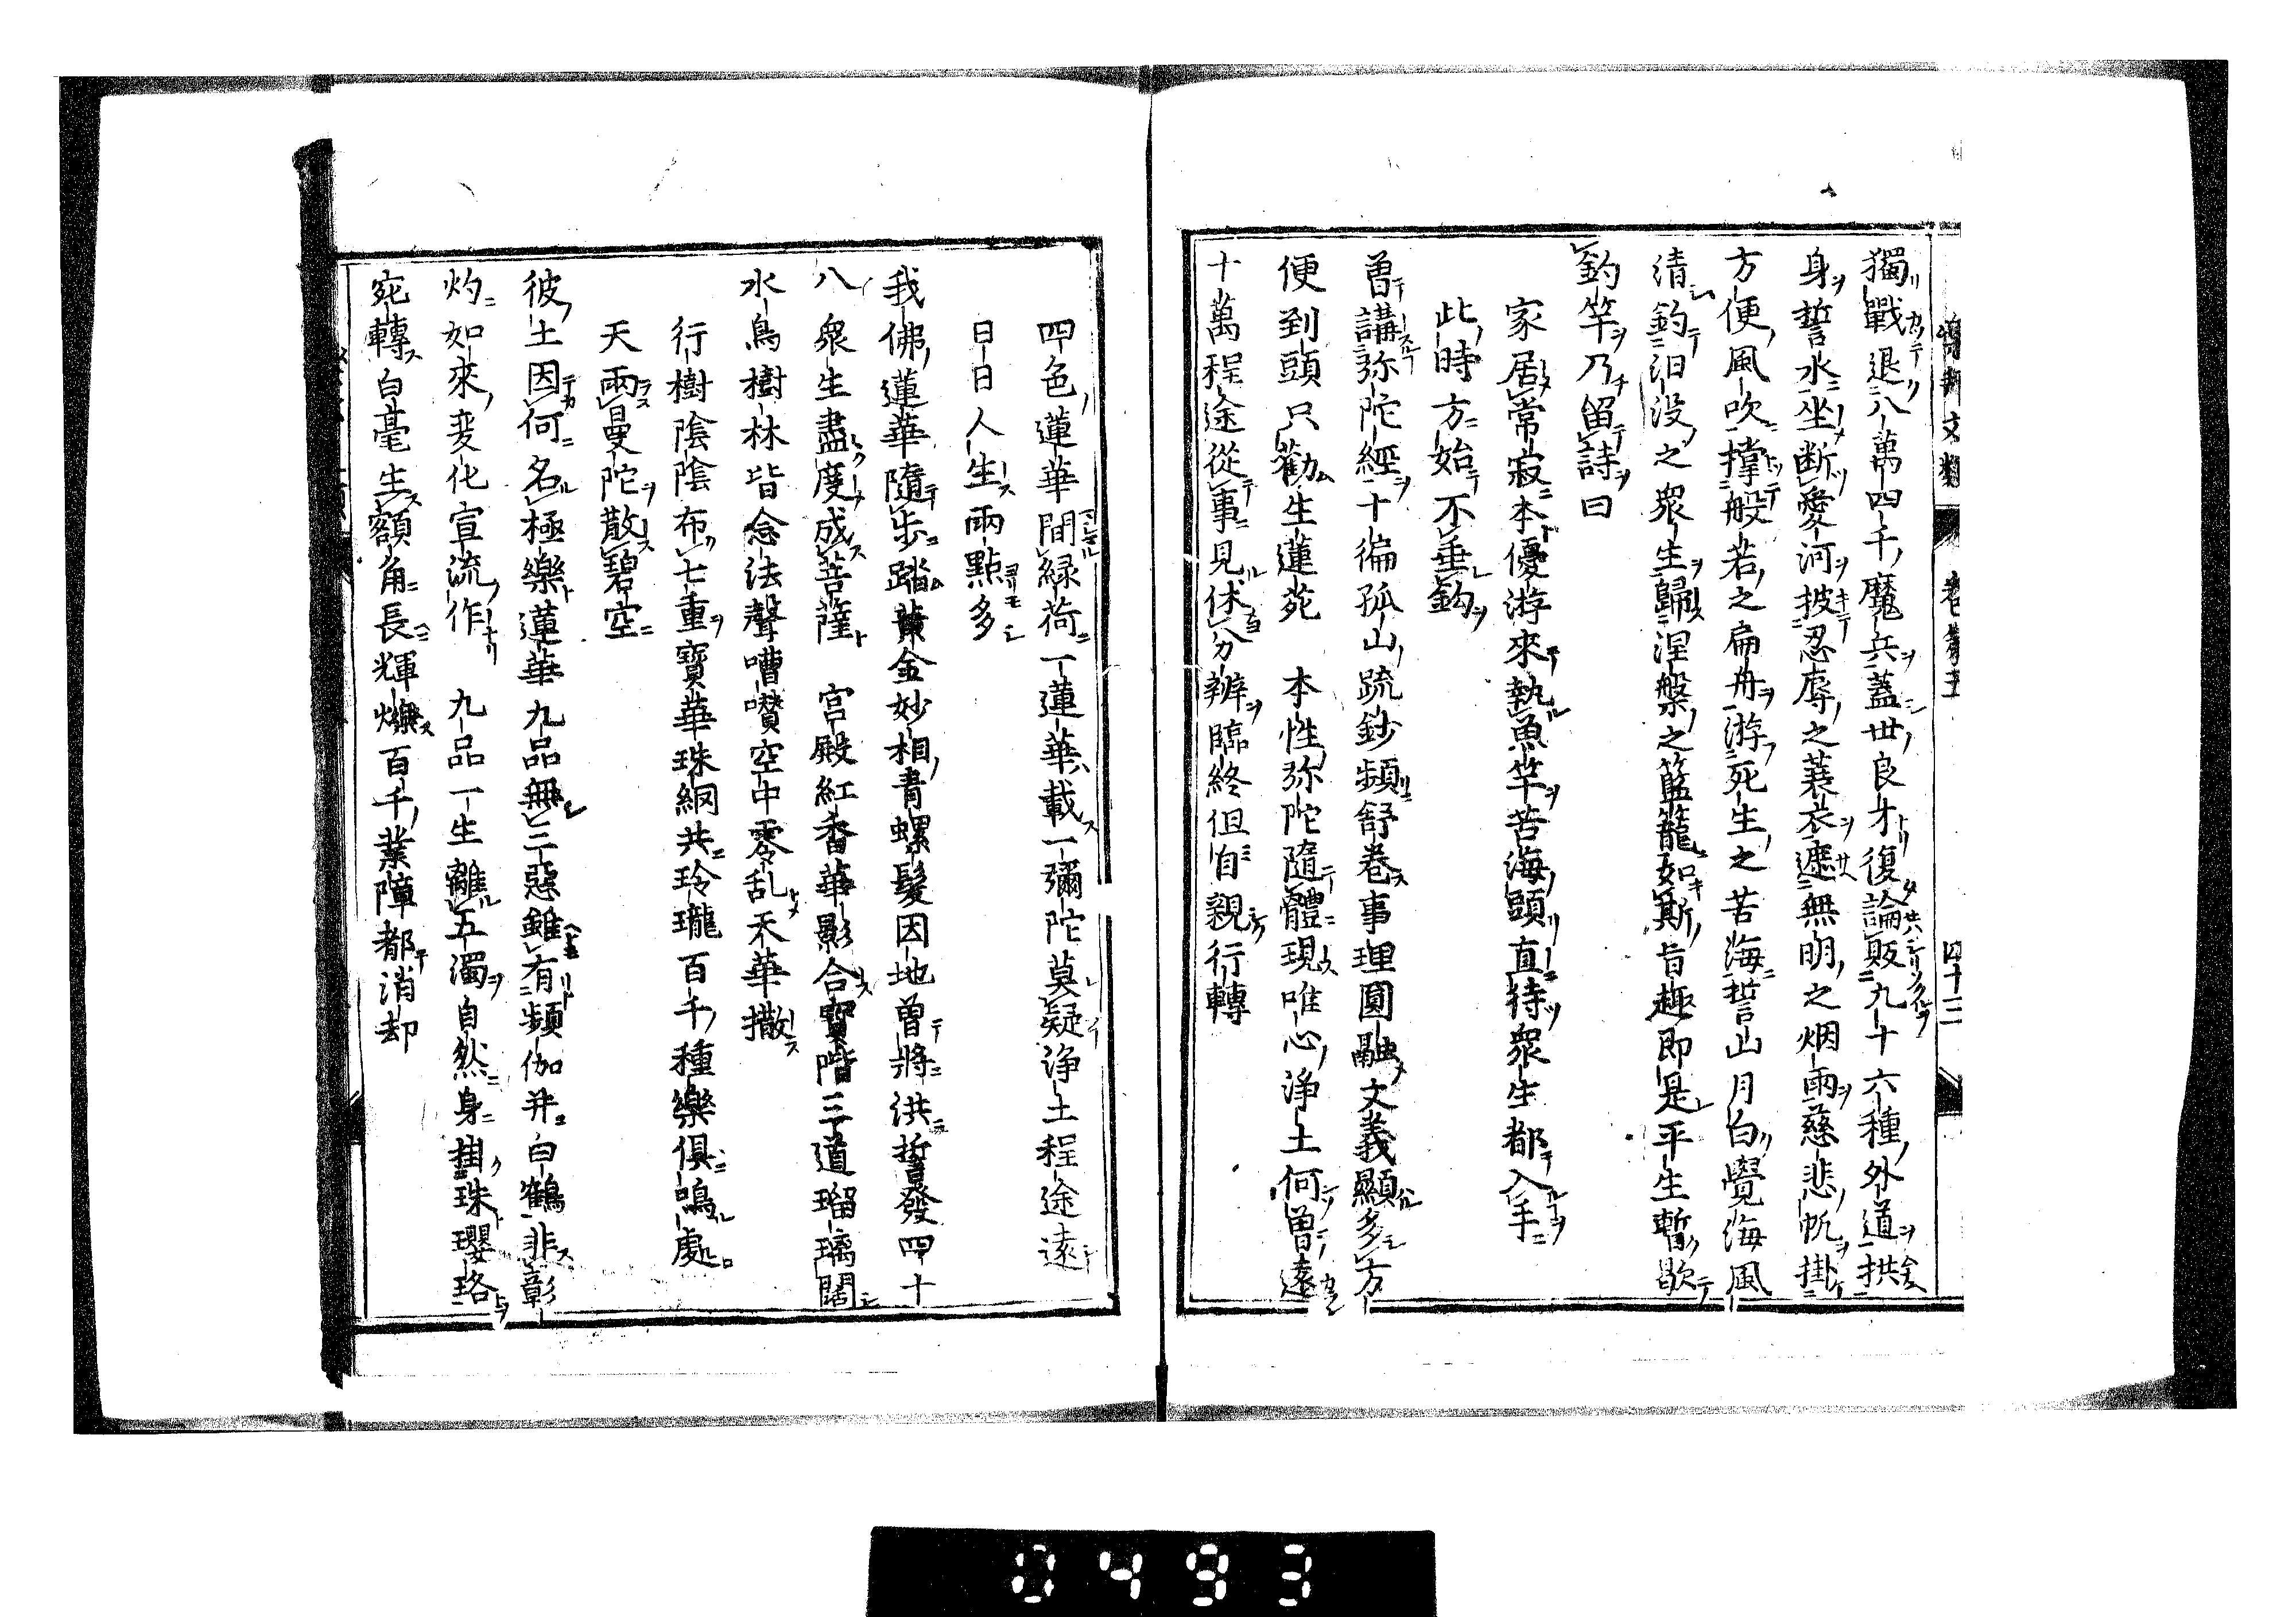 獨戰退八萬四千魔兵蓋世良才復論販九十六種外道拱
身誓水坐断愛河披忍辱之蓑衣遮無明之烟雨慈悲帆掛
方便風吹撑般若之扁舟游死生之苦海誓山月白覺海風
清釣汨没之衆生歸涅槃之籃籠如斯旨趣即是平生暫歇
釣竿乃留詩曰
家居常寂本優游來執魚竿苦海頭直待衆生都入手
此時方始不垂鈎
曽講弥陀經十徧孤山疏鈔頻舒卷事理圓融文義顯多方
便到頭只勸生蓮苑 本性弥陀隨體現唯心浄土何曽遠
十萬程途從事見休分辨臨終但自親行轉
四色蓮華間緑荷一蓮華載一彌陀莫疑浄土程途遠
日日人生兩點多
我佛蓮華隨歩踏黄金妙相青螺髮因地曽將洪誓發四十
八衆生盡度成菩薩 宮殿紅香華影合寳階三道瑠璃闊
水鳥樹林皆念法聲嘈囋空中零乱天華撒
行樹陰陰布七重寳華珠網共玲瓏百千種樂倶鳴處
天雨曼陀散碧空
彼土因何名極樂蓮華九品無三惡雖有頻伽并白鶴非彰
灼如來变化宣流作 九品一生離五濁自然身掛珠瓔珞
宛轉白毫生額角長輝爍百千業障都消却
文類 卷第五 四十三
0493